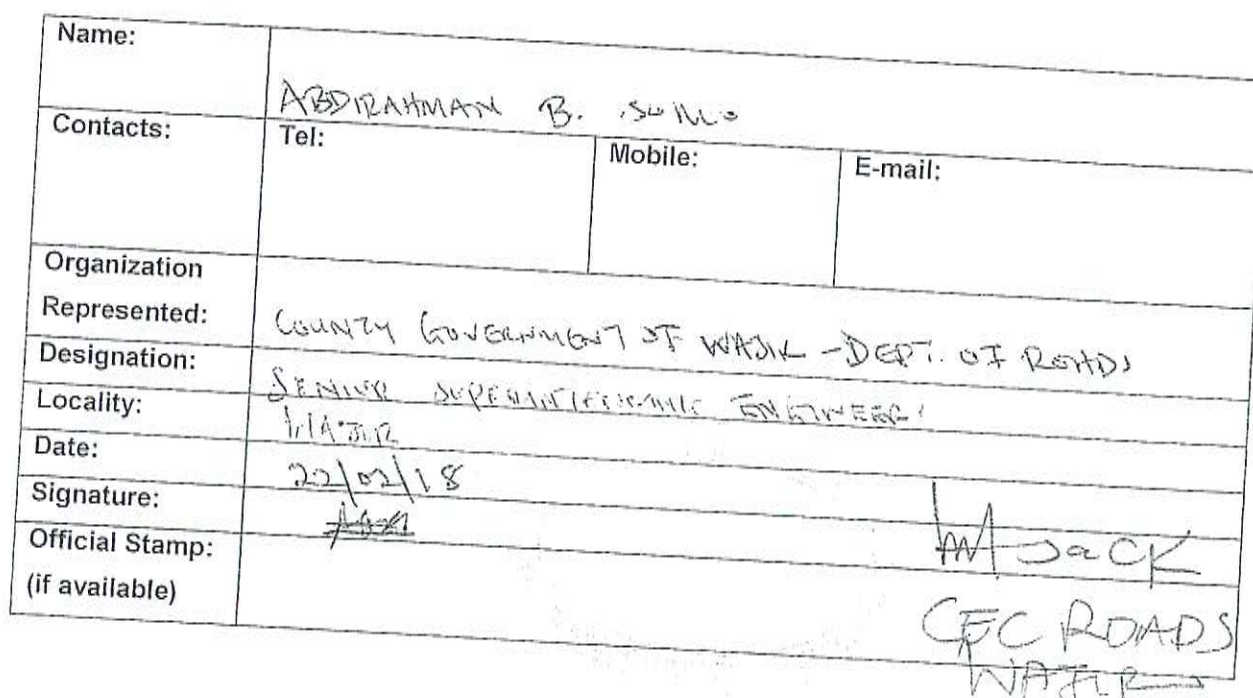 Name:
ABDIRAHMAN B.
Contacts:
Tel:
Mobile:
E-mail:
Organization
Represented:
COUNTY GOVERNMENT OF WAJIR - DEPT. OF ROADS
Designation:
SENIOR SUPERINTENDING ENGINEER
Locality:
WAJIR
Date:
22/02/18
Signature:
Jack
Official Stamp:
(if available)
CEC ROADS
WAJIR